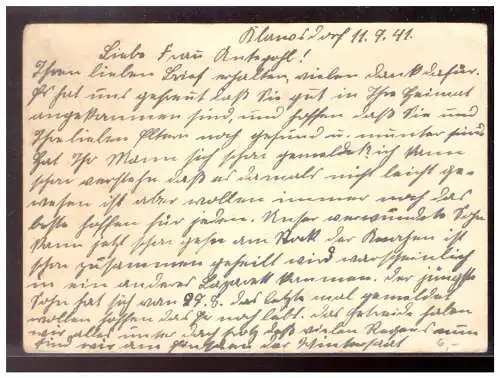 Klanosdorf 11.9.41.
Liebe Frau Antepohl!
Ihren lieben Brief erhalten, vielen dank dafür.
Es hat uns gefreut daß Sie gut in Ihre Heimat
angekommen sind, und hoffen daß Sie und
Ihre lieben Eltern noch gesund u. munter sind
hat Ihr Mann sich schon gemeldet ich kann
schon verstehn daß es damals nicht leicht ge-
wesen ist aber wollen immer noch das
beste hoffen für jeden. Unser verwundete Sohn
kann jetzt schon gehn am Stock der Knochen ist
schon zusammen geheilt wird warscheinlich
in ein anderes Lazarett kommen. der jüngste
Sohn hat sich von 27.8. das letzte mal gemeldet
wollen hoffen das Er noch lebt. das Getreide haben
wir alles unter dach trotz daß vielen Regens nun
sind wir am der Wintersaat
6,-